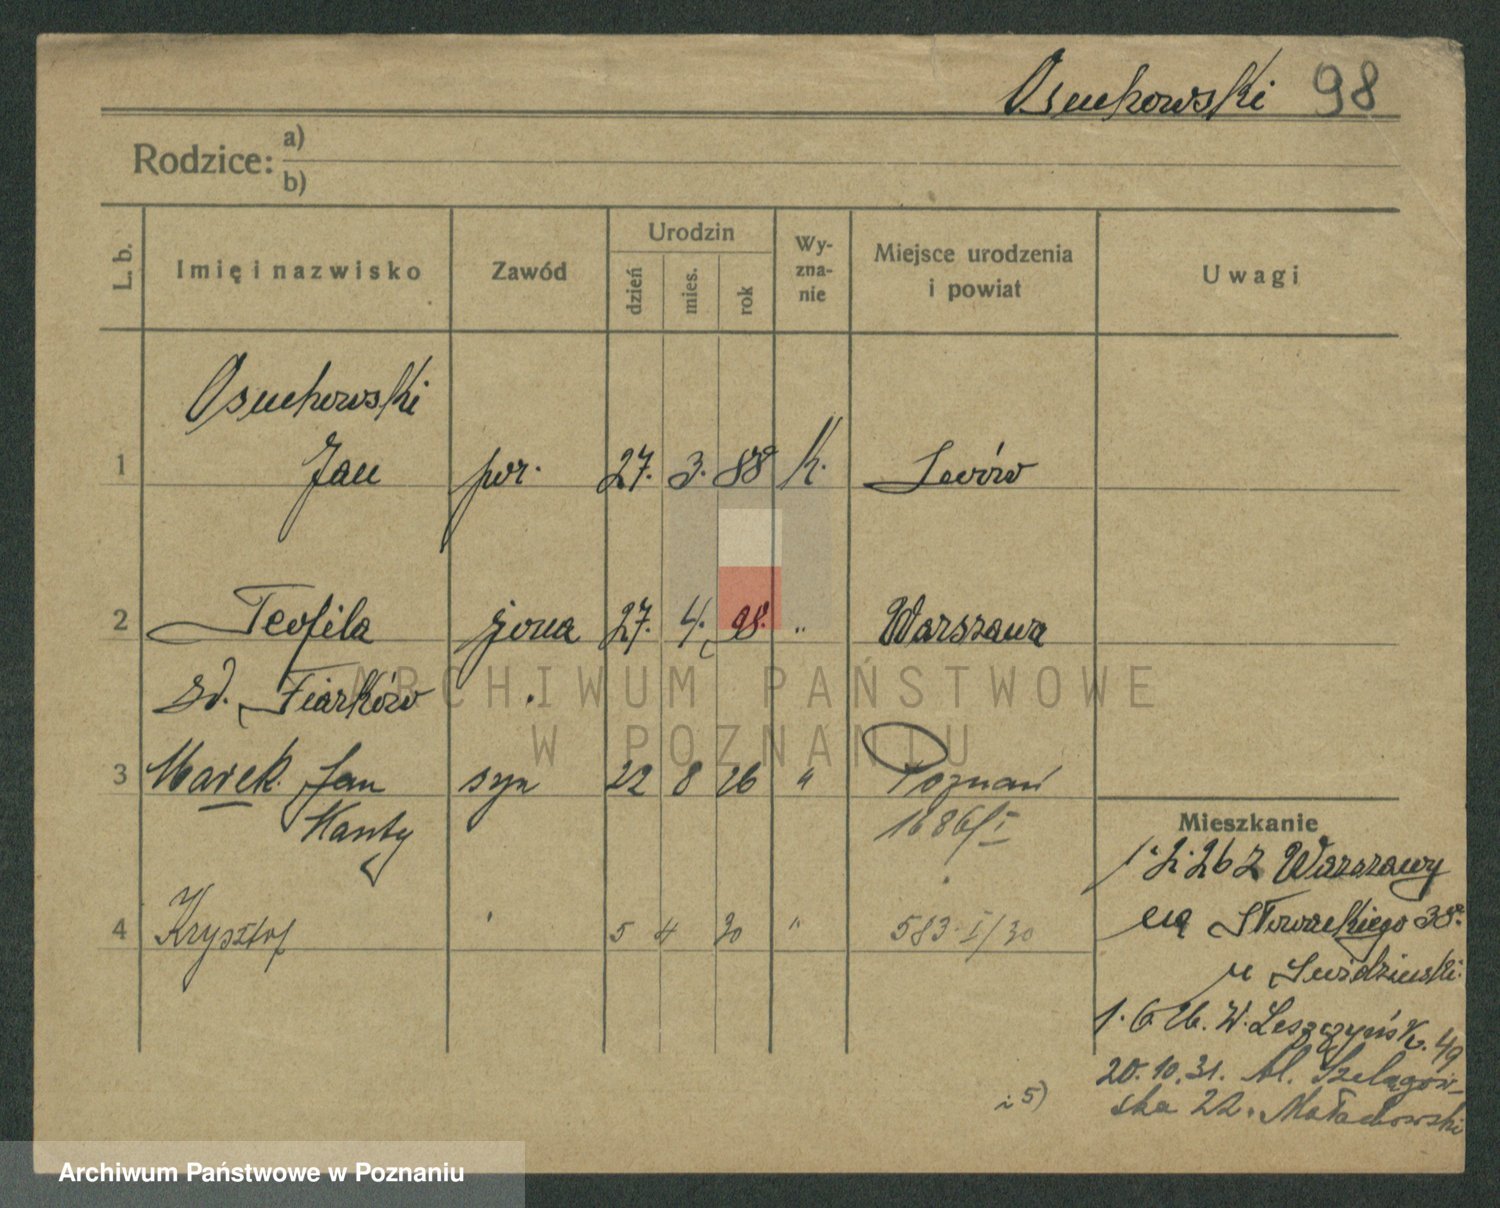 Osuchowski 98
Rodzice: a)
b)
L. b. Imię i nazwisko Zawód Urodzin dzień mies. rok Wy-zna-nie Miejsce urodzenia i powiat Uwagi
Osuchowski
1 Jan por. 27. 3. 88 k. Lwów
2 Teofila żona 27. 4. 98. " Warszawa
zd. Fiarków
3 Marek Jan syn 22 8 26 " Poznań
Kanty 1686/I
4 Krysztof 5 4 30 " 583 I/30
Mieszkanie
1. 2. 26 z Warszawy
na Słowackiego 38.
u
1. 6. 26. W. Leszczyńsk. 49
20.10.31. Al. Szelągow-
ska 22. Małachowski
i 5)
ARCHIWUM PAŃSTWOWE
W POZNANIU
Archiwum Państwowe w Poznaniu